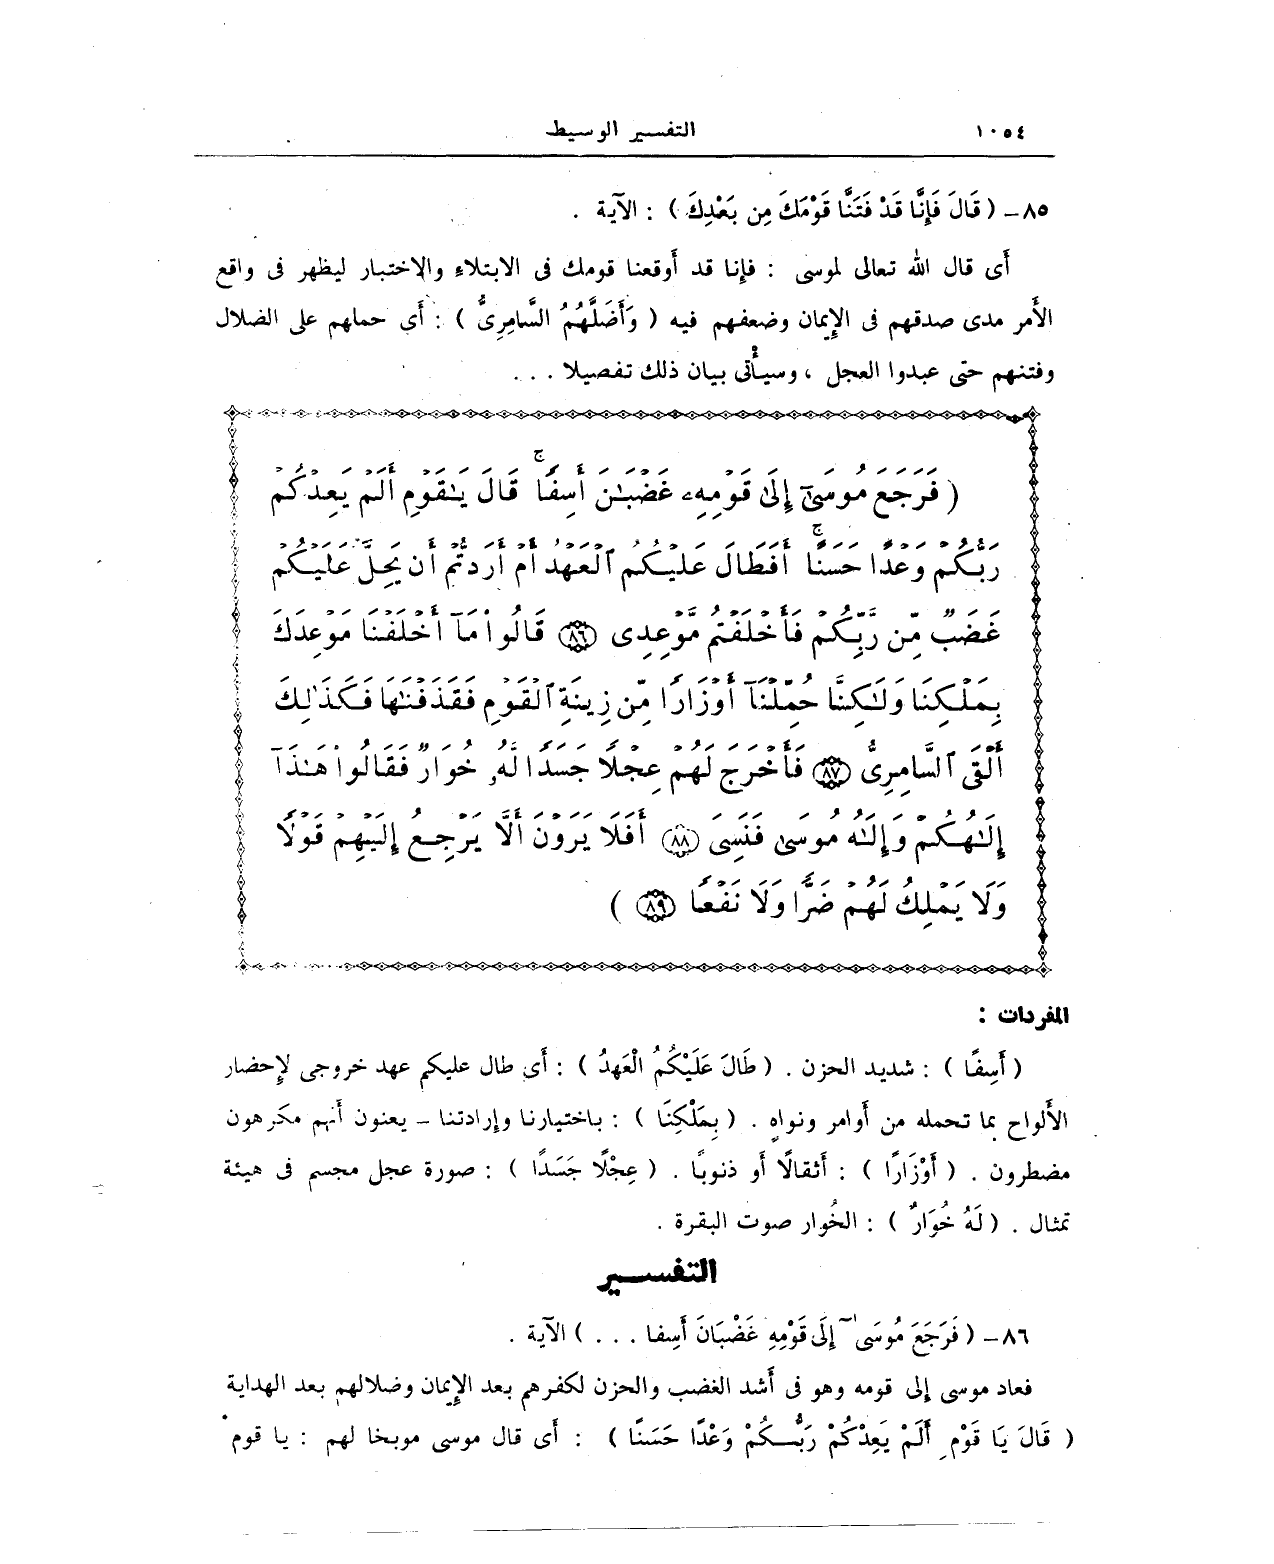 ١٠٥٤ التفسير الوسيط
٨٥ - ( قَالَ فَإِنَّا قَدْ فَتَنَّا قَوْمَكَ مِن بَعْدِكَ ) : الآية .
أى قال الله تعالى لموسى : فإنا قد أوقعنا قومك فى الابتلاء والاختبار ليظهر فى واقع
الأمر مدى صدقهم فى الإيمان وضعفهم فيه ( وَأَضَلَّهُمُ السَّامِرِىُّ ) : أى حملهم على الضلال
وفتنهم حتى عبدوا العجل ، وسيأتى بيان ذلك تفصيلا . . .
( فَرَجَعَ مُوسَىٰٓ إِلَىٰ قَوْمِهِۦ غَضْبَـٰنَ أَسِفًا ۚ قَالَ يَـٰقَوْمِ أَلَمْ يَعِدْكُمْ
رَبُّكُمْ وَعْدًا حَسَنًا ۚ أَفَطَالَ عَلَيْكُمُ ٱلْعَهْدُ أَمْ أَرَدتُّمْ أَن يَحِلَّ عَلَيْكُمْ
غَضَبٌ مِّن رَّبِّكُمْ فَأَخْلَفْتُم مَّوْعِدِى ٨٦ قَالُوا۟ مَآ أَخْلَفْنَا مَوْعِدَكَ
بِمَلْكِنَا وَلَـٰكِنَّا حُمِّلْنَآ أَوْزَارًا مِّن زِينَةِ ٱلْقَوْمِ فَقَذَفْنَـٰهَا فَكَذَٰلِكَ
أَلْقَى ٱلسَّامِرِىُّ ٨٧ فَأَخْرَجَ لَهُمْ عِجْلًا جَسَدًا لَّهُۥ خُوَارٌ فَقَالُوا۟ هَـٰذَآ
إِلَـٰهُكُمْ وَإِلَـٰهُ مُوسَىٰ فَنَسِىَ ٨٨ أَفَلَا يَرَوْنَ أَلَّا يَرْجِعُ إِلَيْهِمْ قَوْلًا
وَلَا يَمْلِكُ لَهُمْ ضَرًّا وَلَا نَفْعًا ٨٩ )
المفردات :
( أَسِفًا ) : شديد الحزن . ( طَالَ عَلَيْكُمُ الْعَهدُ ) : أى طال عليكم عهد خروجى لإحضار
الألواح بما تحمله من أوامر ونواهٍ . ( بِمَلْكِنَا ) : باختيارنا وإرادتنا - يعنون أنهم مكرهون
مضطرون . ( أَوْزَارًا ) : أثقالًا أو ذنوبًا . ( عِجْلًا جَسَدًا ) : صورة عجل مجسم فى هيئة
تمثال . ( لَهُ خُوَارٌ ) : الخُوار صوت البقرة .
التفســـير
٨٦ - ( فَرَجَعَ مُوسَىٰٓ إِلَى قَوْمِهِ غَضْبَانَ أَسِفا . . . ) الآية .
فعاد موسى إلى قومه وهو فى أشد الغضب والحزن لكفرهم بعد الإيمان وضلالهم بعد الهداية
( قَالَ يَا قَوْمِ أَلَمْ يَعِدْكُمْ رَبُّـكُمْ وَعْدًا حَسَنًا ) : أى قال موسى موبخا لهم : يا قوم